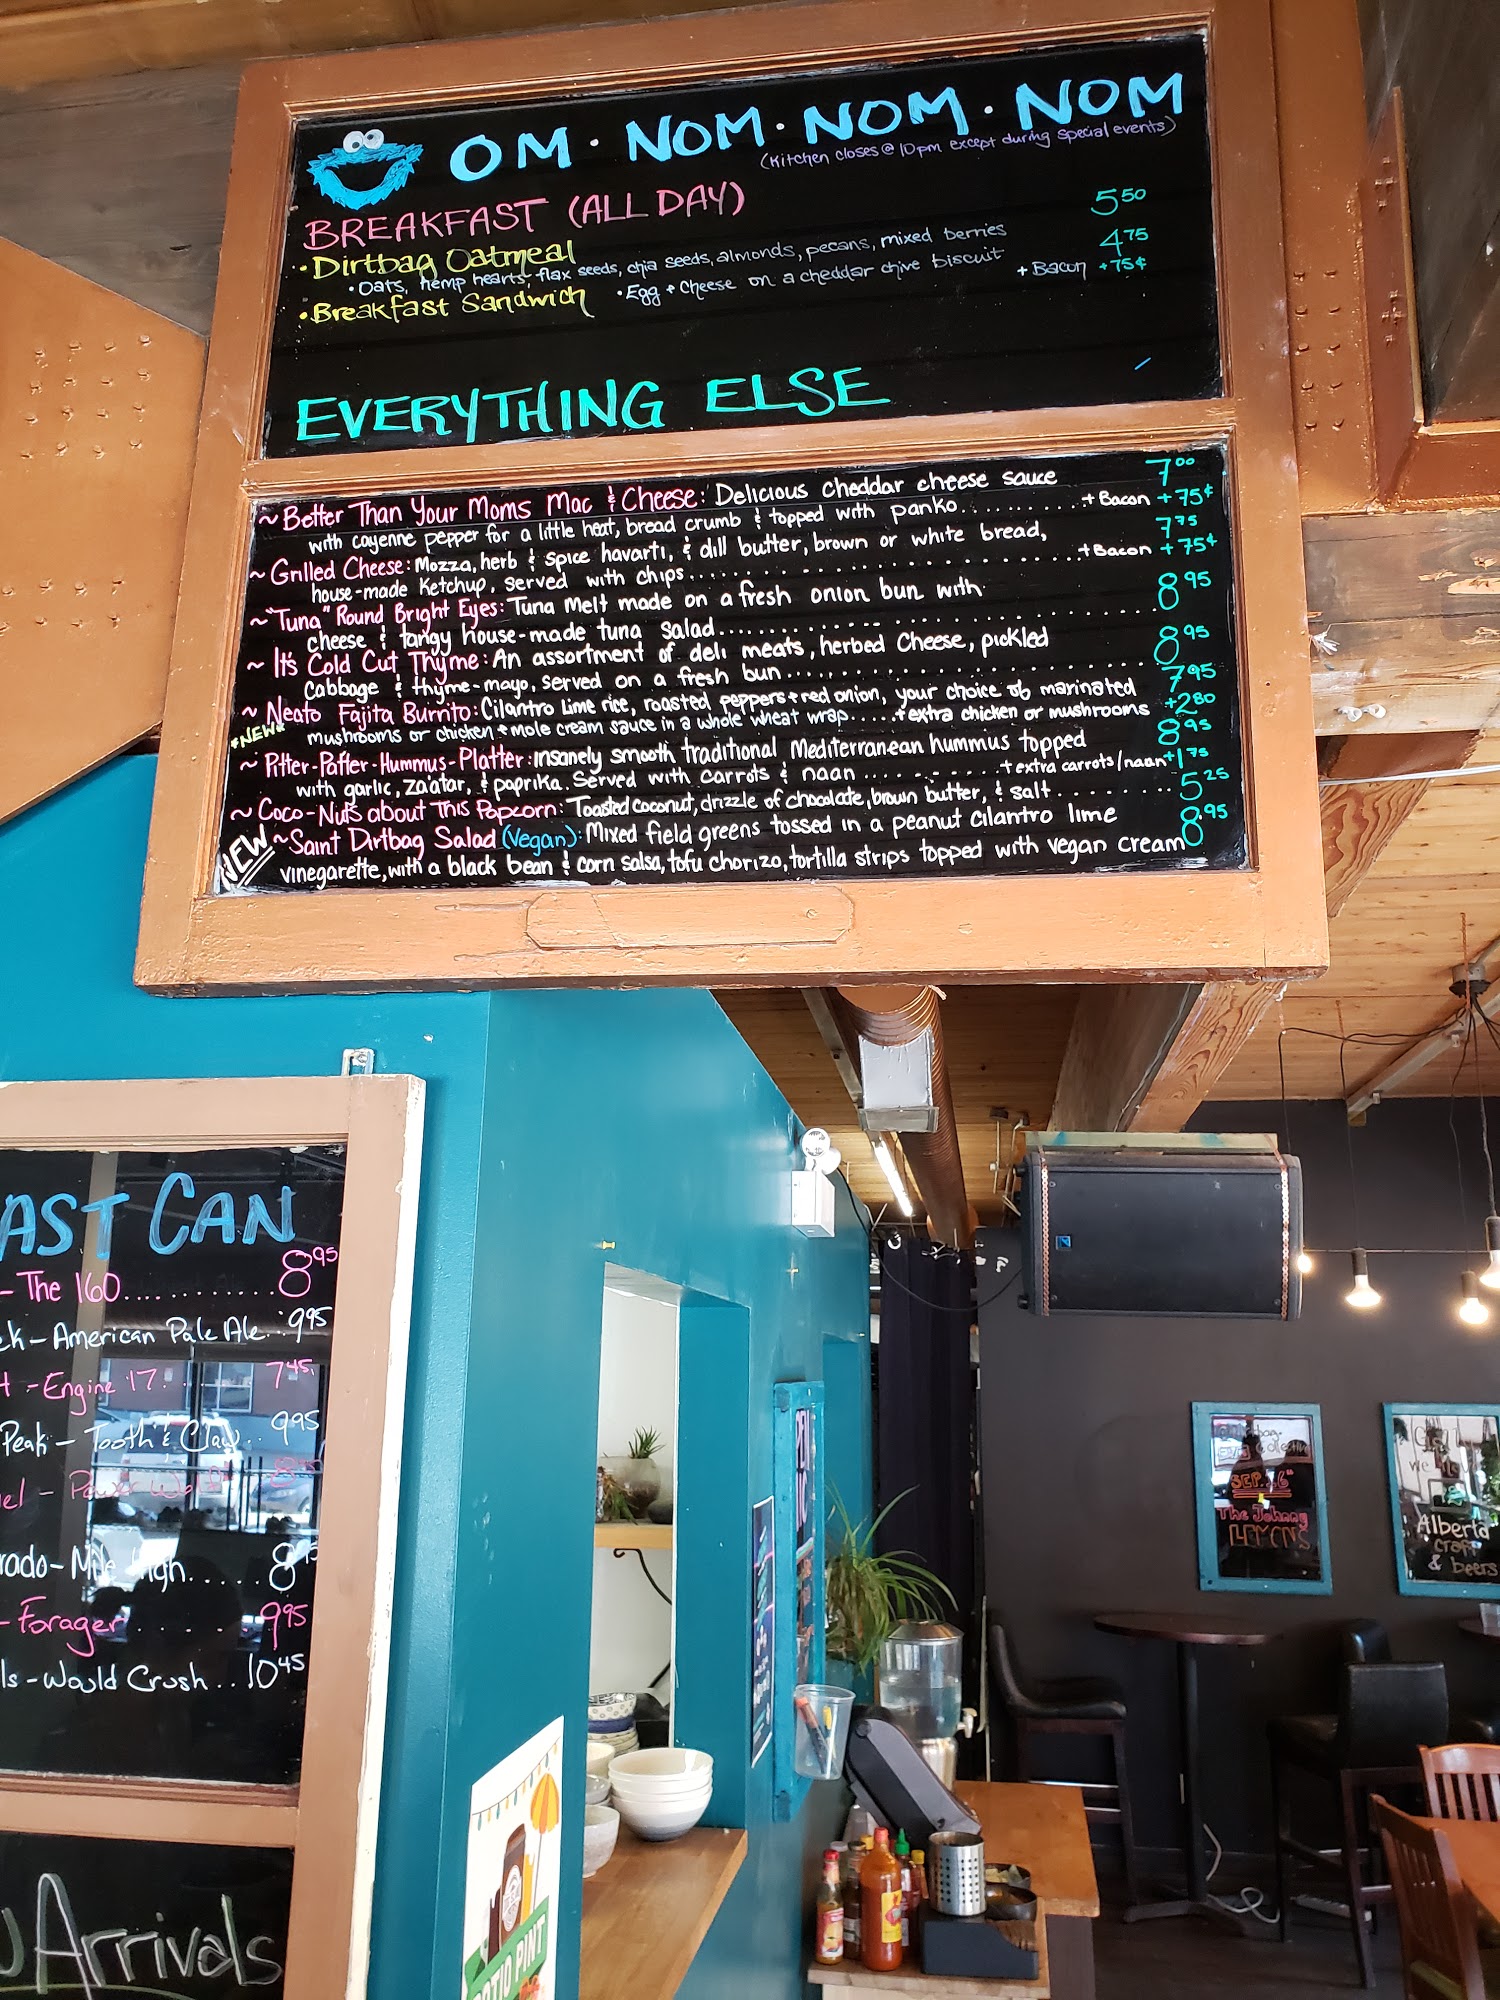 OM · NOM · NOM · NOM
(Kitchen closes @ 10pm except during special events)
BREAKFAST (ALL DAY)
• Dirtbag Oatmeal 5.50
• Oats, hemp hearts, flax seeds, chia seeds, almonds, pecans, mixed berries
• Breakfast Sandwich • Egg + Cheese on a cheddar chive biscuit 4.75
+ Bacon +75¢
EVERYTHING ELSE
~ Better Than Your Moms Mac & Cheese: Delicious cheddar cheese sauce 7.00
with cayenne pepper for a little heat, bread crumb & topped with panko.......... + Bacon +75¢
~ Grilled Cheese: Mozza, herb & spice havarti, & dill butter, brown or white bread, 7.75
house-made Ketchup, served with chips............... + Bacon +75¢
~ "Tuna" Round Bright Eyes: Tuna Melt made on a fresh onion bun with
cheese & tangy house-made tuna salad............... 8.95
~ It's Cold Cut Thyme: An assortment of deli meats, herbed Cheese, pickled
Cabbage & thyme-mayo, served on a fresh bun............... 8.95
~ Neato Fajita Burrito: Cilantro Lime rice, roasted peppers + red onion, your choice of marinated 7.95
*NEW* mushrooms or chicken + mole cream sauce in a whole wheat wrap.....+ extra chicken or mushrooms +2.80
~ Pitter-Patter-Hummus-Platter: insanely smooth traditional Mediterranean hummus topped 8.95
with garlic, za'atar, & paprika. Served with carrots & naan .......... + extra carrots/naan +1.75
~ Coco-Nuts about This Popcorn: Toasted coconut, drizzle of chocolate, brown butter, & salt.......... 5.25
NEW ~ Saint Dirtbag Salad (Vegan): Mixed field greens tossed in a peanut cilantro lime 8.95
vinegarette, with a black bean & corn salsa, tofu chorizo, tortilla strips topped with vegan cream
AST CAN
- The 160............ 8.95
ek - American Pale Ale... 9.95
- Engine 17... 7.45
Peak - Tooth & Claw.. 9.95
el - Power Wolf 8.95
rado - Mile High..... 8
- Forager...... 9.95
ls - Would Crush.. 10.45
Arrivals
PATIO PINT
SEP. 26th
The Johnny
LEMONS
Alberta
craft
& beers